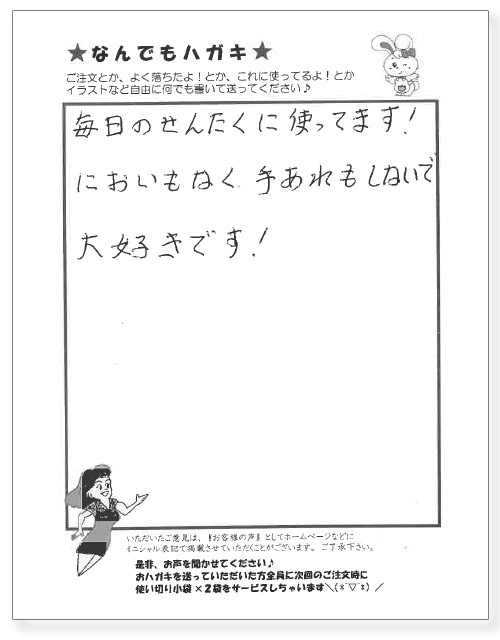 ★なんでもハガキ★
ご注文とか、よく落ちたよ！とか、これに使ってるよ！とか
イラストなど自由に何でも書いて送ってください♪
毎日のせんたくに使ってます！
においもなく、手あれもしないで
大好きです！
いただいたご意見は、『お客様の声』としてホームページなどに
イニシャル表記で掲載させていただくことがございます。ご了承下さい。
是非、お声を聞かせてください♪
おハガキを送っていただいた方全員に次回のご注文時に
使い切り小袋×２袋をサービスしちゃいます＼(*ˊ▽ˋ*)／